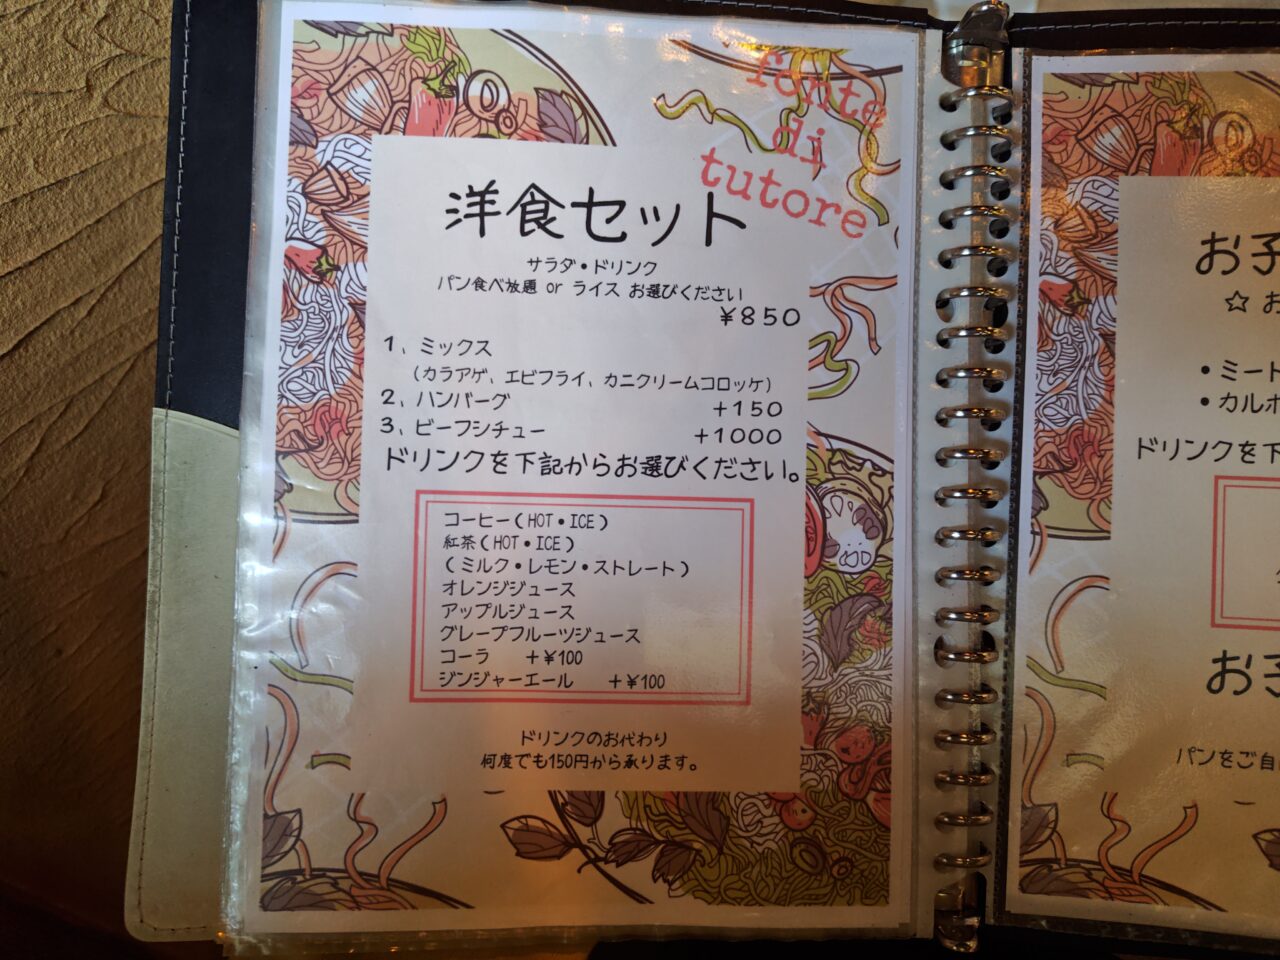 fonte
di
tutore
洋食セット
サラダ・ドリンク
パン食べ放題 or ライス お選びください
¥850
1、ミックス
(カラアゲ、エビフライ、カニクリームコロッケ)
2、ハンバーグ +150
3、ビーフシチュー +1000
ドリンクを下記からお選びください。
コーヒー(HOT・ICE)
紅茶(HOT・ICE)
(ミルク・レモン・ストレート)
オレンジジュース
アップルジュース
グレープフルーツジュース
コーラ +¥100
ジンジャーエール +¥100
ドリンクのお代わり
何度でも150円から承ります。
お子
☆ お
・ミート
・カルボ
ドリンクを下
お子
パンをご自